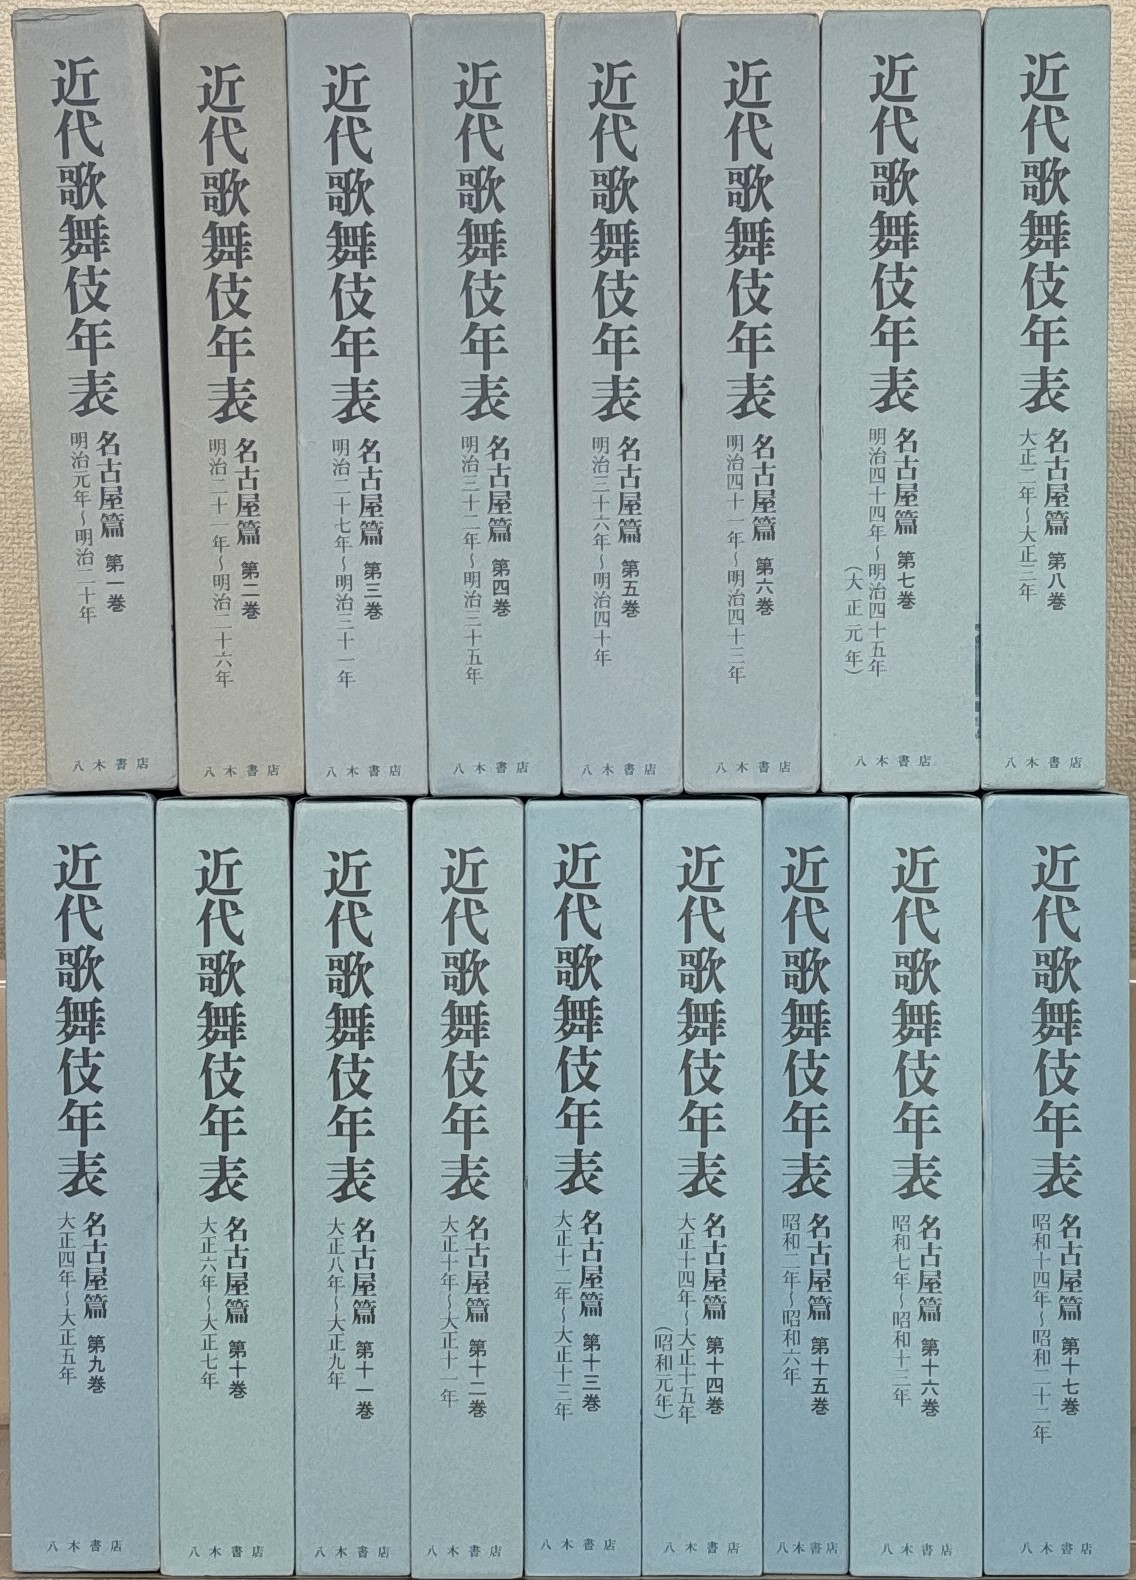 近代歌舞伎年表
名古屋篇 第一巻
明治元年～明治二十年
八木書店
近代歌舞伎年表
名古屋篇 第二巻
明治二十一年～明治二十六年
八木書店
近代歌舞伎年表
名古屋篇 第三巻
明治二十七年～明治三十一年
八木書店
近代歌舞伎年表
名古屋篇 第四巻
明治三十二年～明治三十五年
八木書店
近代歌舞伎年表
名古屋篇 第五巻
明治三十六年～明治四十年
八木書店
近代歌舞伎年表
名古屋篇 第六巻
明治四十一年～明治四十三年
八木書店
近代歌舞伎年表
名古屋篇 第七巻
明治四十四年～明治四十五年
(大正元年)
八木書店
近代歌舞伎年表
名古屋篇 第八巻
大正二年～大正三年
八木書店
近代歌舞伎年表
名古屋篇 第九巻
大正四年～大正五年
八木書店
近代歌舞伎年表
名古屋篇 第十巻
大正六年～大正七年
八木書店
近代歌舞伎年表
名古屋篇 第十一巻
大正八年～大正九年
八木書店
近代歌舞伎年表
名古屋篇 第十二巻
大正十年～大正十一年
八木書店
近代歌舞伎年表
名古屋篇 第十三巻
大正十二年～大正十三年
八木書店
近代歌舞伎年表
名古屋篇 第十四巻
大正十四年～大正十五年
(昭和元年)
八木書店
近代歌舞伎年表
名古屋篇 第十五巻
昭和二年～昭和六年
八木書店
近代歌舞伎年表
名古屋篇 第十六巻
昭和七年～昭和十三年
八木書店
近代歌舞伎年表
名古屋篇 第十七巻
昭和十四年～昭和二十二年
八木書店